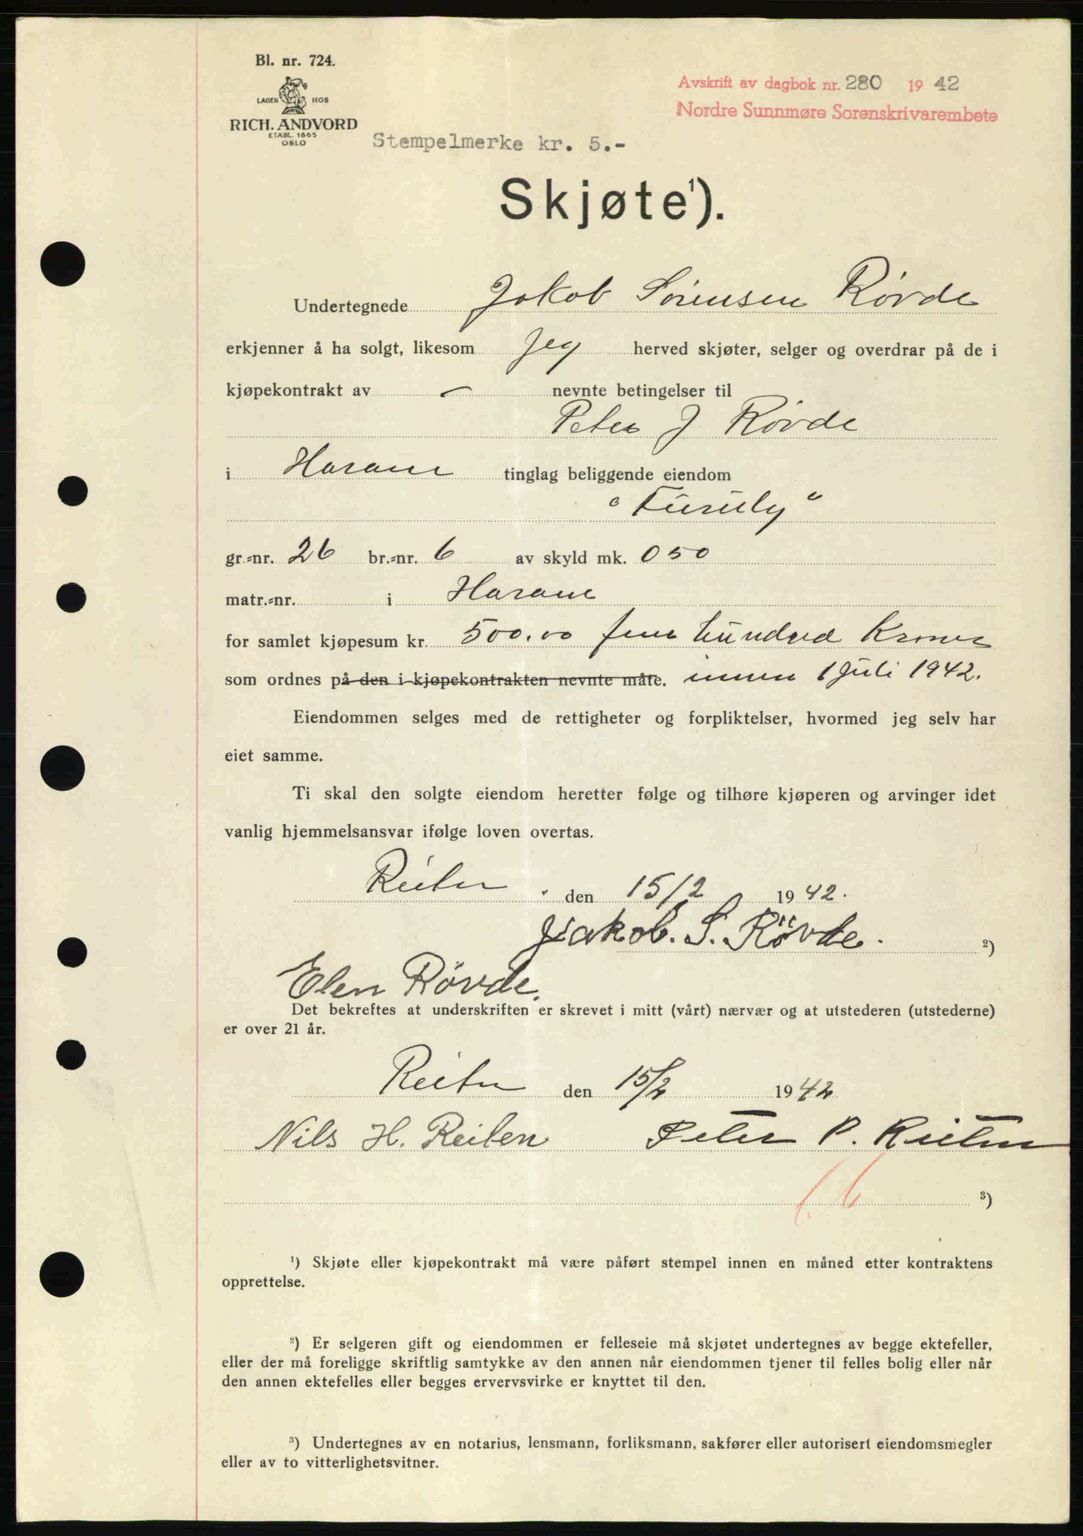 Bl. nr. 724.
LAGER HOS
RICH. ANDVORD
ETABL. 1865
OSLO
Avskrift av dagbok nr. 280 1942
Nordre Sunnmøre Sorenskrivarembete
Stempelmerke kr. 5.-
Skjøte¹).
Undertegnede Jakob Sørensen Røvde
erkjenner å ha solgt, likesom jeg herved skjøter, selger og overdrar på de i
kjøpekontrakt av - nevnte betingelser til
Peter J Røvde
i Haram tinglag beliggende eiendom
"Furuly"
gr.-nr. 26 br.-nr. 6 av skyld mk. 0 50
matr.-nr. i Haram
for samlet kjøpesum kr. 500.00 fem hundred Kroner
som ordnes på den i kjøpekontrakten nevnte måte. innen 1 Juli 1942.
Eiendommen selges med de rettigheter og forpliktelser, hvormed jeg selv har
eiet samme.
Ti skal den solgte eiendom heretter følge og tilhøre kjøperen og arvinger idet
vanlig hjemmelsansvar ifølge loven overtas.
Reiten den 15/2 1942.
Jakob. S. Røvde. ²)
Elen Rövde.
Det bekreftes at underskriften er skrevet i mitt (vårt) nærvær og at utstederen (utstederne)
er over 21 år.
Reiten den 15/2 1942
Nils H. Reiten Peter P. Reiten
³)
¹) Skjøte eller kjøpekontrakt må være påført stempel innen en måned etter kontraktens
opprettelse.
²) Er selgeren gift og eiendommen er felleseie må skjøtet undertegnes av begge ektefeller,
eller der må foreligge skriftlig samtykke av den annen når eiendommen tjener til felles bolig eller når
den annen ektefelles eller begges ervervsvirke er knyttet til den.
³) Undertegnes av en notarius, lensmann, forliksmann, sakfører eller autorisert eiendomsmegler
eller av to vitterlighetsvitner.